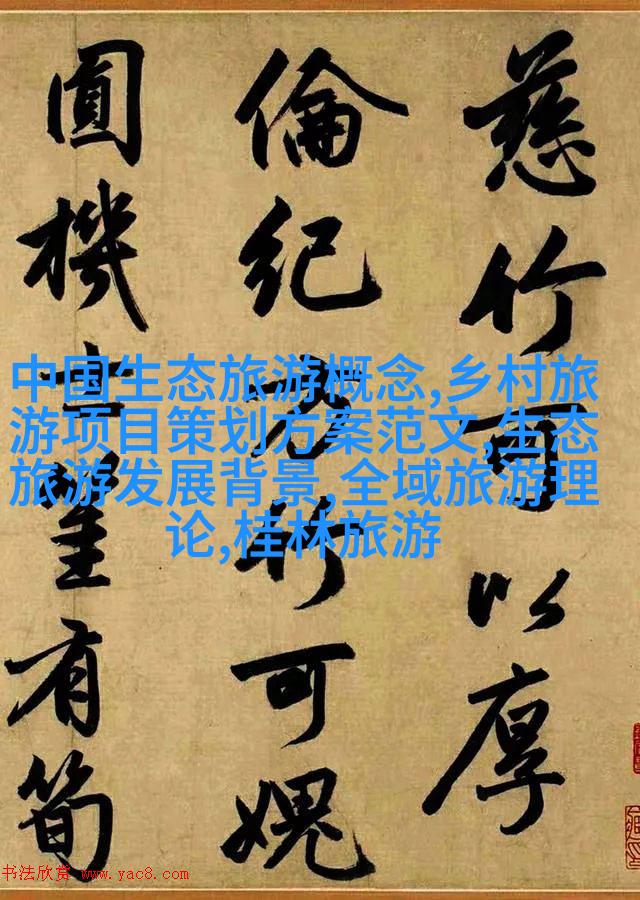 慈竹可以厚
倫紀方竹可媿
圓機士有筍
中国生态旅游概念,乡村旅
游项目策划方案范文,生态
旅游发展背景,全域旅游理
论,桂林旅游
书法欣赏 www.yac8.com